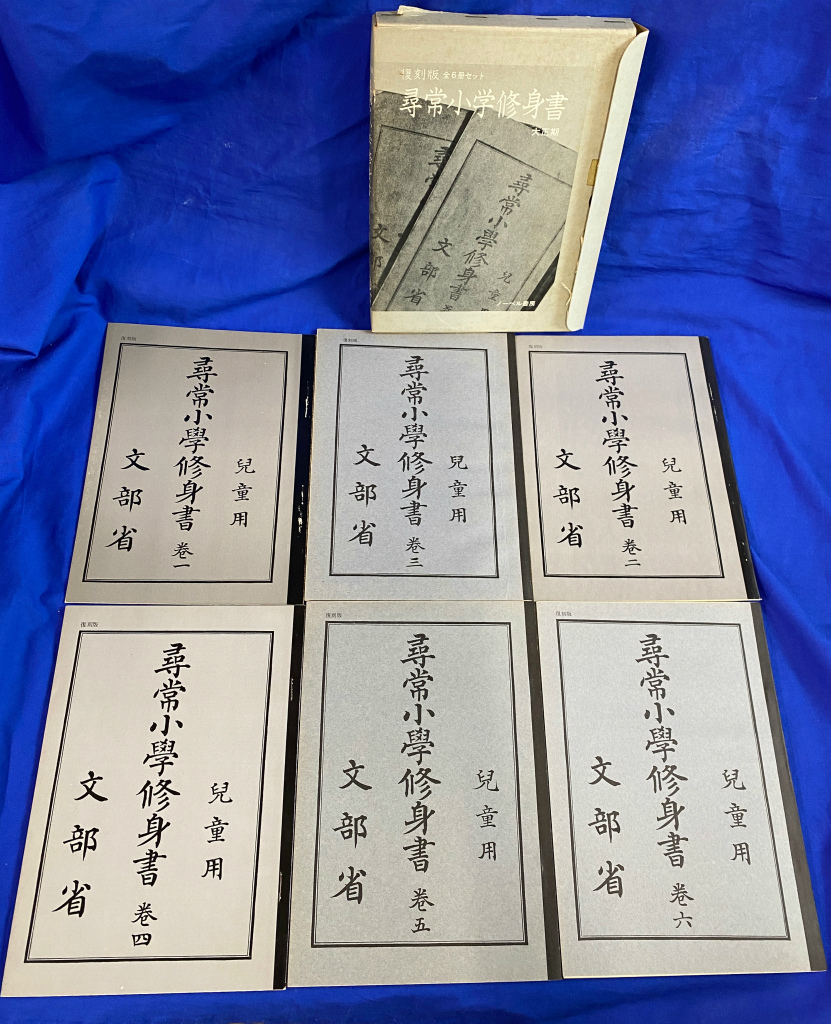 復刻版 全6冊セット
尋常小学修身書
大正期
尋常小學修身書
兒童
文部省
文
ノーベル書房
復刻版
兒童用
尋常小學修身書 卷一
文部省
復刻版
兒童用
尋常小學修身書 卷三
文部省
復刻版
兒童用
尋常小學修身書 卷二
文部省
復刻版
兒童用
尋常小學修身書 卷四
文部省
復刻版
兒童用
尋常小學修身書 卷五
文部省
復刻版
兒童用
尋常小學修身書 卷六
文部省